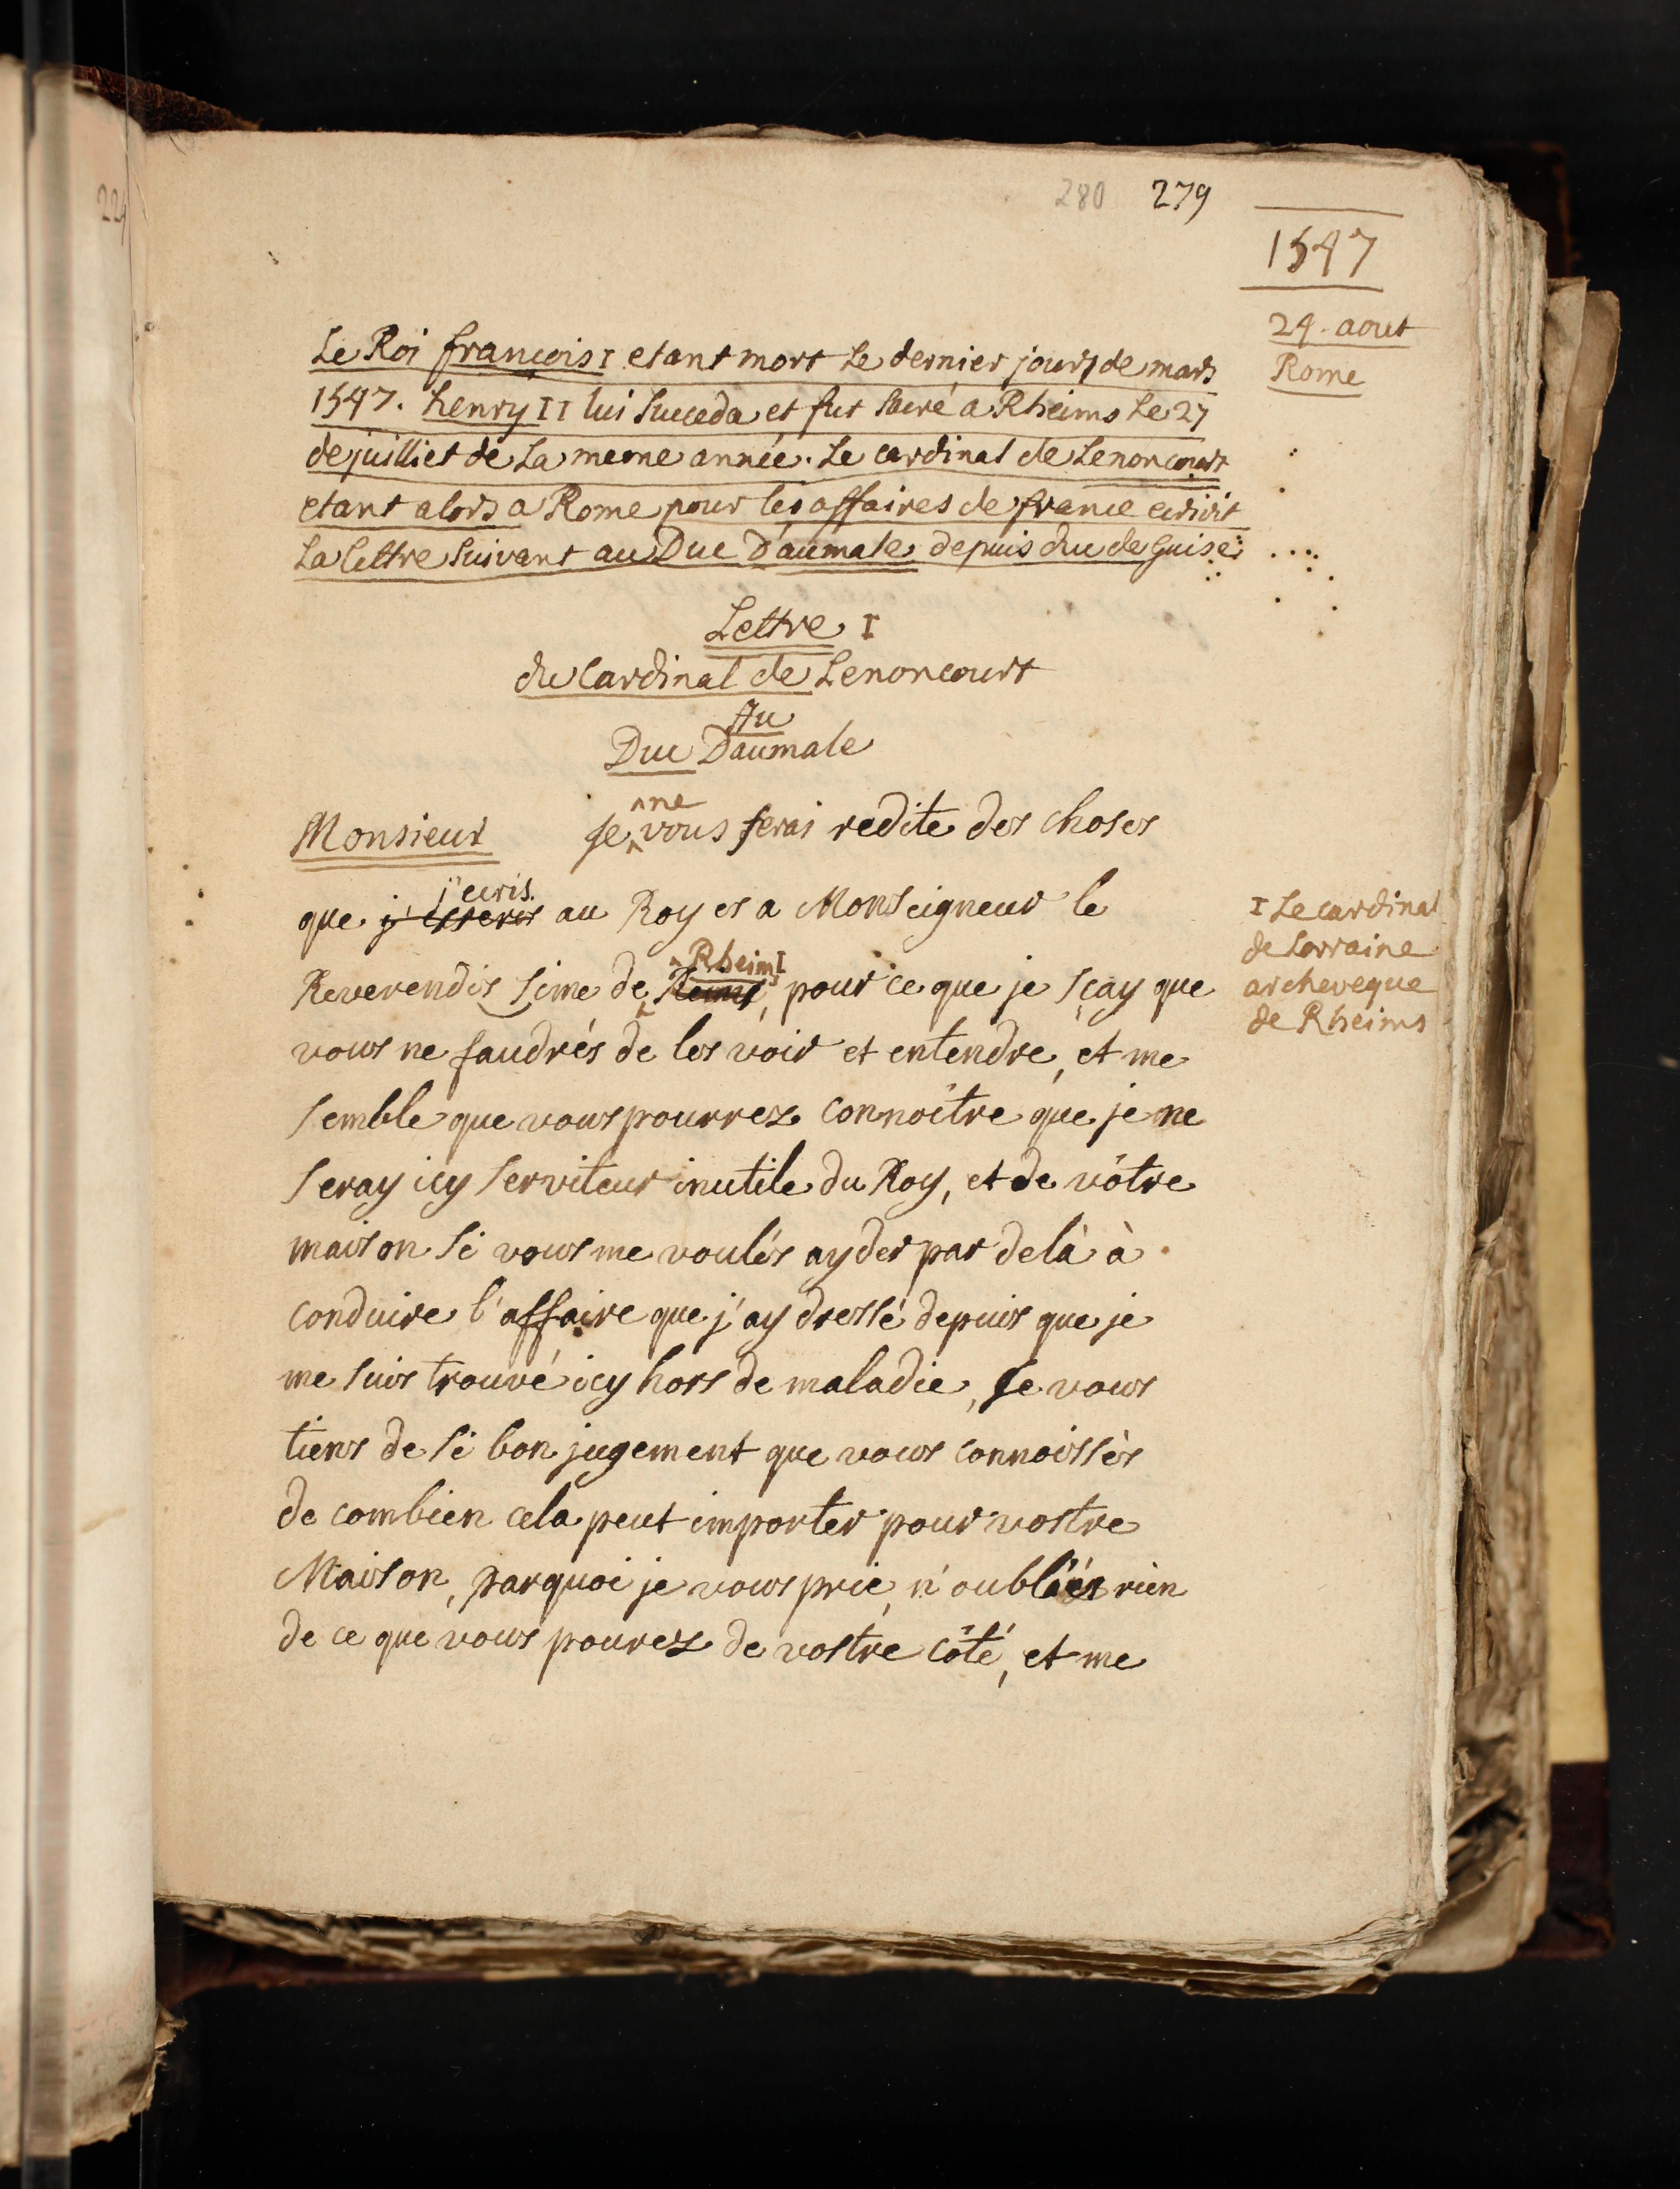 280 279
1547
24. aout
Rome
Le Roi françois I etant mort Le dernier jour de mars
1547. henry II lui succeda et fut sacré a Rheims Le 27
de juilliet de La meme année. Le cardinal de Lenoncourt
etant alors a Rome pour les affaires de france ecrivit
La lettre suivant au Duc Daumale depuis duc de Guise
Lettre I
du Cardinal de Lenoncourt
Au
Duc Daumale
Monsieur Je ne vous ferai redite des choses
que j'ecris au Roy et a Monseigneur le
Reverendissime de Rheims I, pour ce que je sçay que
vous ne faudrés de les voir et entendre, et me
semble que vous pourrez connoître que je ne
seray icy serviteur inutile du Roy, et de vôtre
maison si vous me voulés ayder par delà à
conduire l'affaire que j'ay dressé depuis que je
me suis trouvé icy hors de maladie, Je vous
tiens de si bon jugement que vous connoissés
de combien cela peut importer pour vostre
Maison, parquoi je vous prie, n'oubliés rien
de ce que vous pourez de vostre côté, et me
I Le cardinal
de Lorraine
archeveque
de Rheims